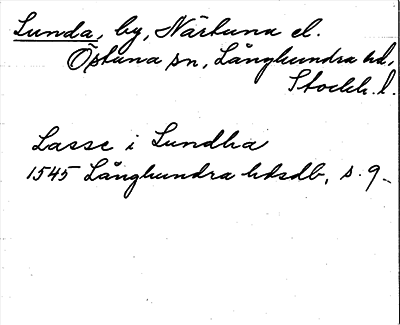 Lunda, by, Närtuna el.
Östuna sn, Långhundra hd,
Stockh. l.
Lasse i Lundha
1545 Långhundra hdsdb, s. 9